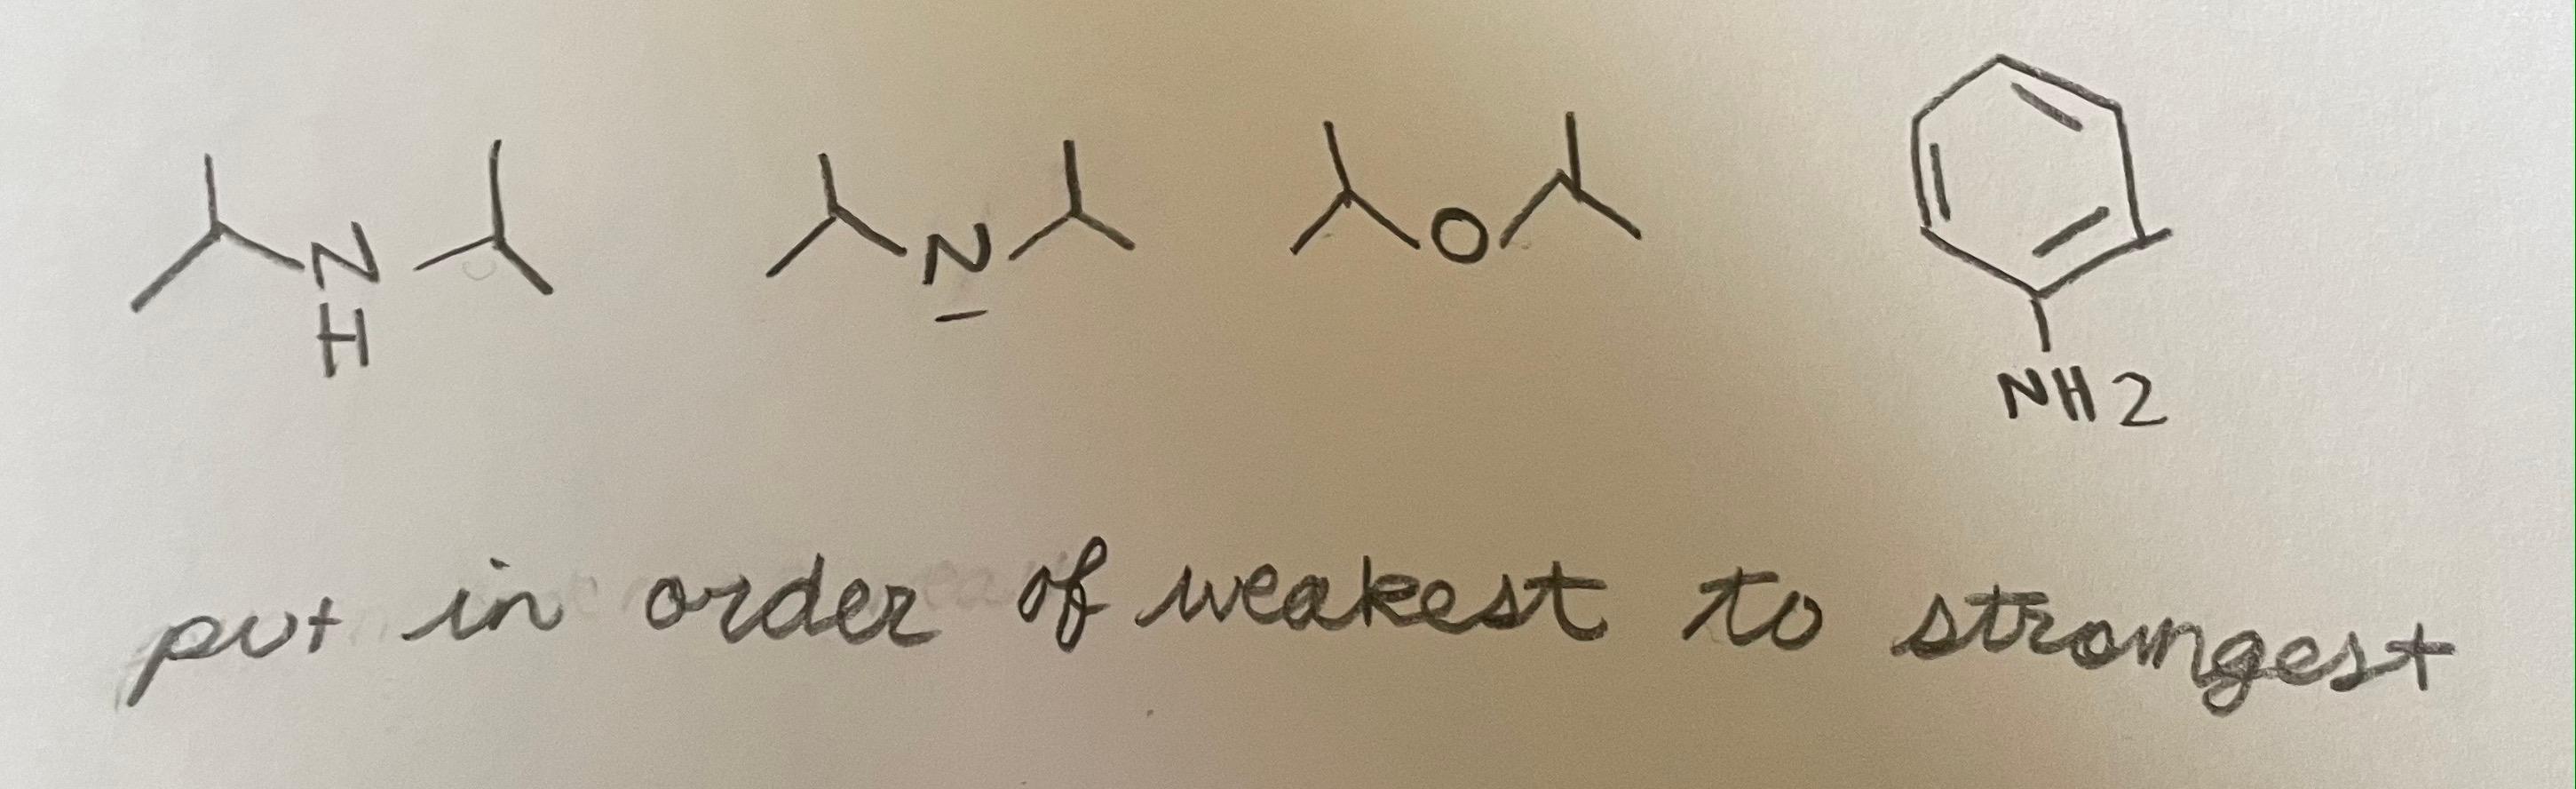 N H
N
-
O
NH2
put in order of weakest to strongest